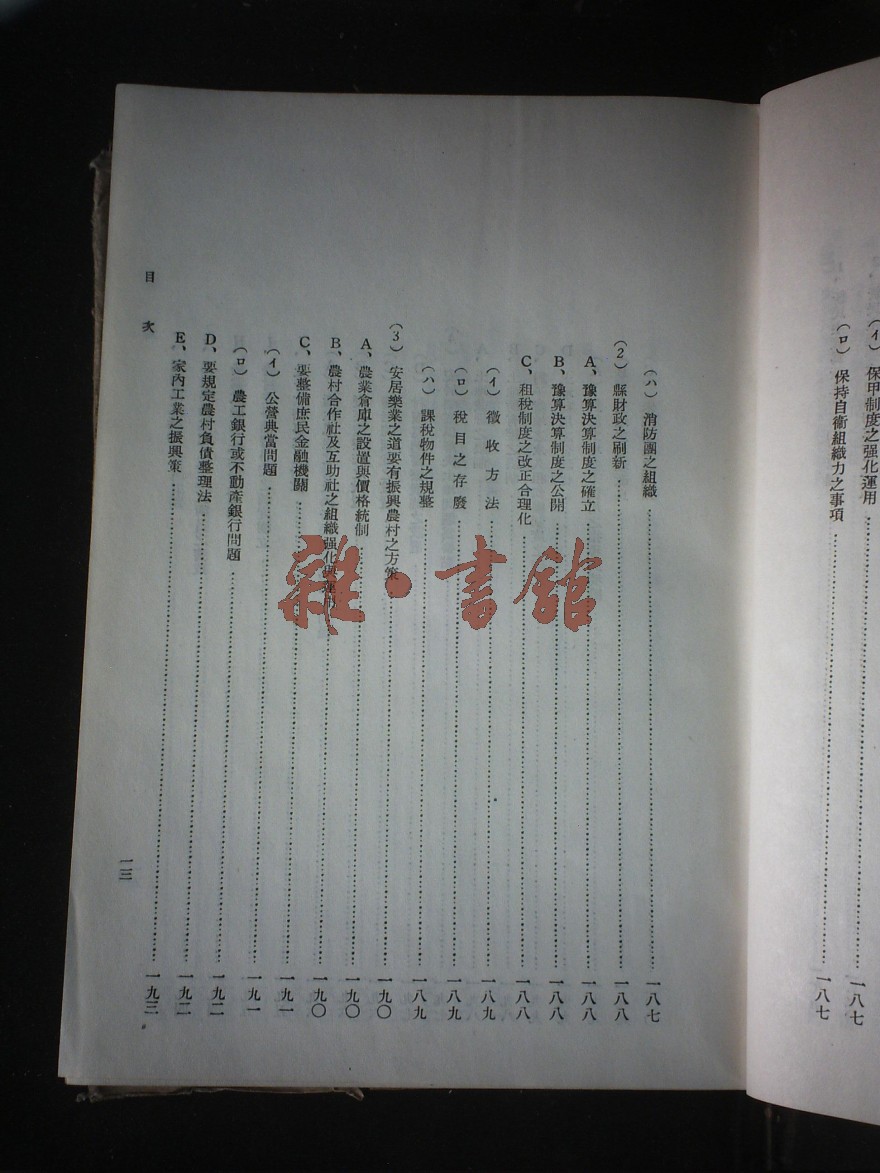 (イ) 保甲制度之强化運用……一八七
(ロ) 保持自衛組織力之事項……一八七
(ハ) 消防團之組織……一八七
(2) 縣財政之刷新……一八八
A、豫算決算制度之確立……一八八
B、豫算決算制度之公開……一八八
C、租稅制度之改正合理化……一八八
(イ) 徵收方法……一八九
(ロ) 稅目之存廢……一八九
(ハ) 課稅物件之規整……一八九
(3) 安居樂業之道要有振興農村之方策……一九〇
A、農業倉庫之設置與價格統制……一九〇
B、農村合作社及互助社之組織强化與運用……一九〇
C、要整備庶民金融機關……一九一
(イ) 公營典當問題……一九一
(ロ) 農工銀行或不動產銀行問題……一九二
D、要規定農村負債整理法……一九二
E、家內工業之振興策……一九三
目次
一三
雜·書館